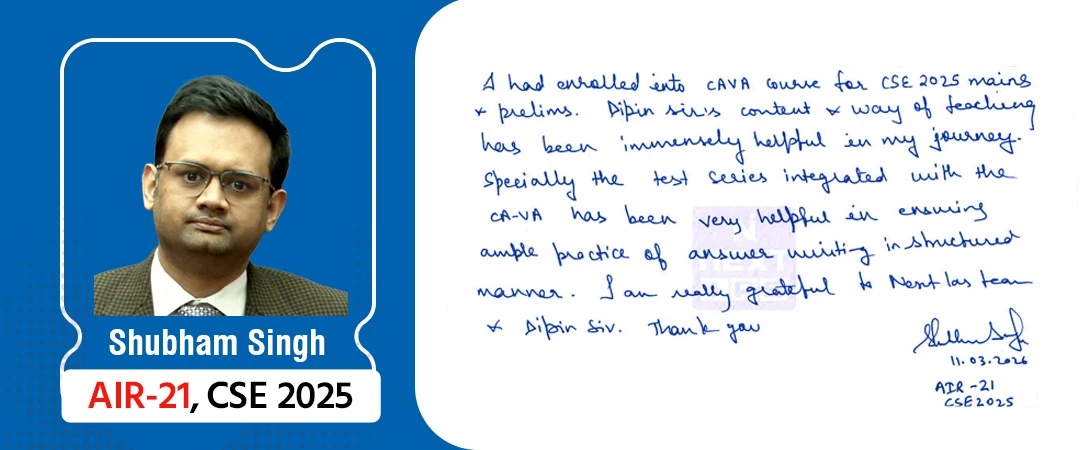 Shubham Singh
AIR-21, CSE 2025
I had enrolled into CAVA course for CSE 2025 mains
& prelims. Dipin sir's content & way of teaching
has been immensely helpful in my journey.
Specially the test series integrated with the
CA-VA has been very helpful in ensuring
ample practice of answer writing in structured
manner. I am really grateful to Next Ias team
& Dipin Sir. Thank you
11.03.2026
AIR-21
CSE2025